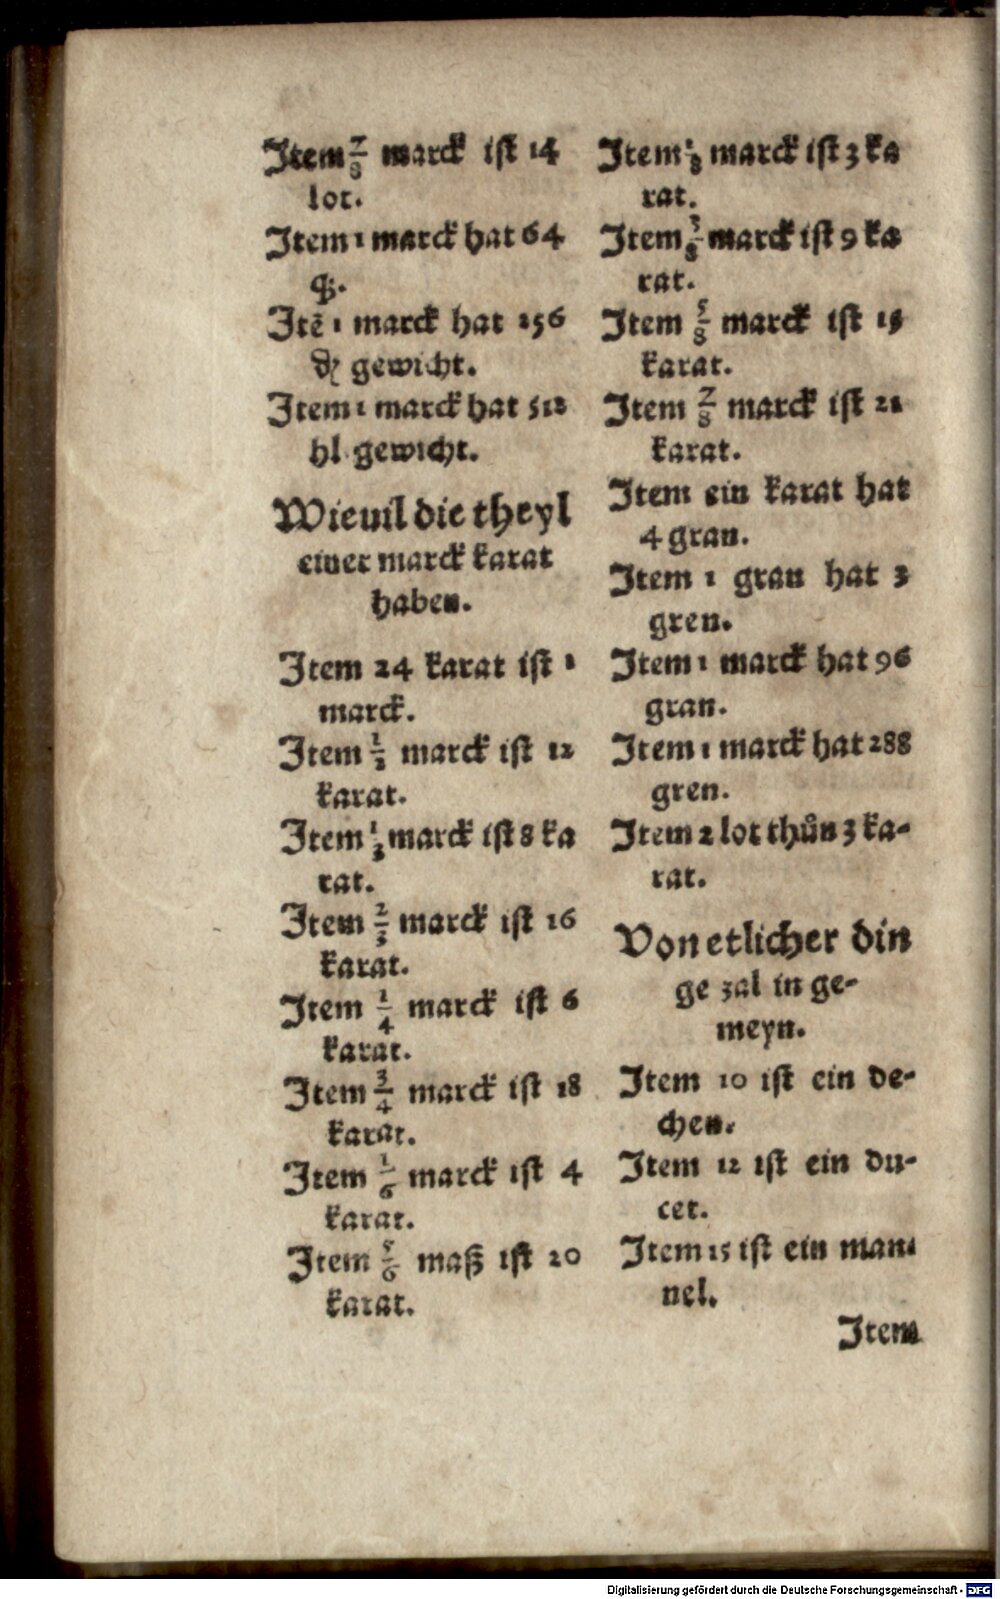 Item 7/8 marck ist 14
lot.
Item 1 marck hat 64
q̃.
Itẽ 1 marck hat 256
₰ gewicht.
Item 1 marck hat 512
hl gewicht.
Wieuil die theyl
einer marck karat
haben.
Item 24 karat ist 1
marck.
Item 1/2 marck ist 12
karat.
Item 1/3 marck ist 8 ka
rat.
Item 2/3 marck ist 16
karat.
Item 1/4 marck ist 6
karat.
Item 3/4 marck ist 18
karat.
Item 1/6 marck ist 4
karat.
Item 5/6 maß ist 20
karat.
Item 1/8 marck ist 3 ka
rat.
Item 3/8 marck ist 9 ka
rat.
Item 5/8 marck ist 15
karat.
Item 7/8 marck ist 21
karat.
Item ein karat hat
4 gran.
Item 1 gran hat 3
gren.
Item 1 marck hat 96
gran.
Item 1 marck hat 288
gren.
Item 2 lot thůn 3 ka-
rat.
Von etlicher din
ge zal in ge-
meyn.
Item 10 ist ein de-
chen.
Item 12 ist ein du-
cet.
Item 15 ist ein man-
nel.
Item
Digitalisierung gefördert durch die Deutsche Forschungsgemeinschaft - DFG